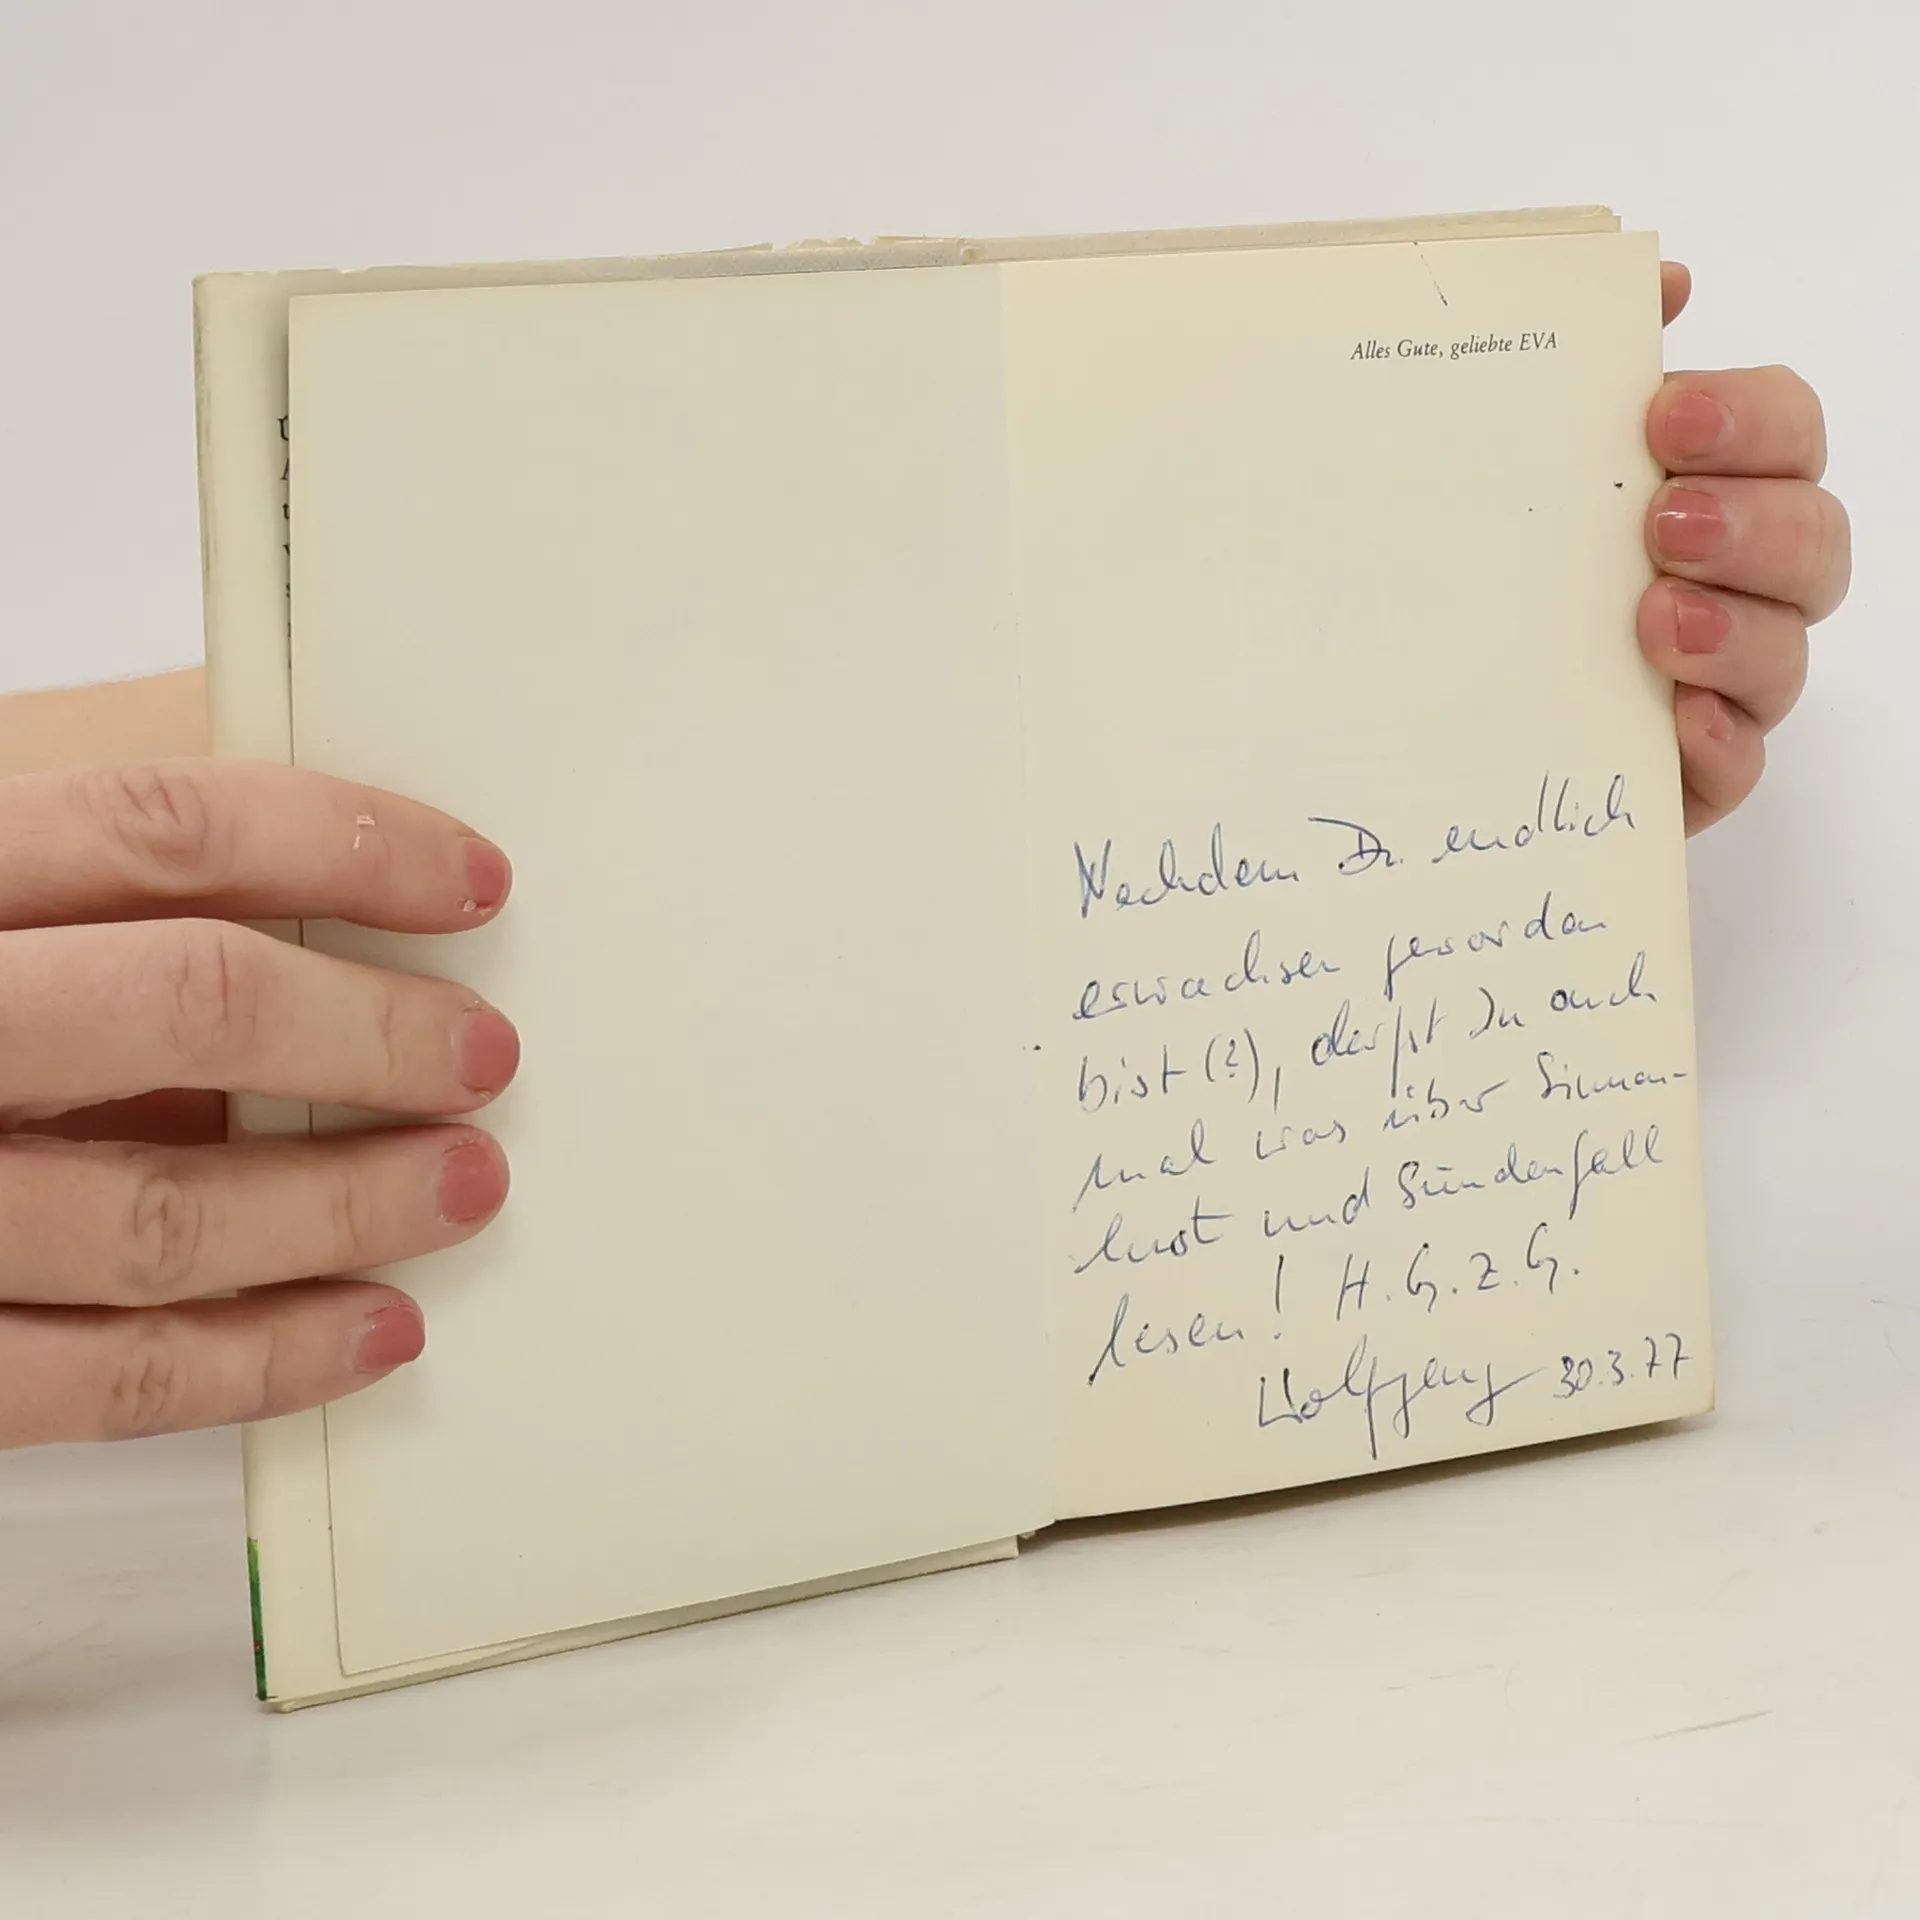 Alles Gute, geliebte EVA
Nachdem Du endlich
erwachsen geworden
bist (?), darfst Du auch
mal was über Sinnen-
lust und Sündenfall
lesen! H. G. z. G.
Wolfgang 30.3.77